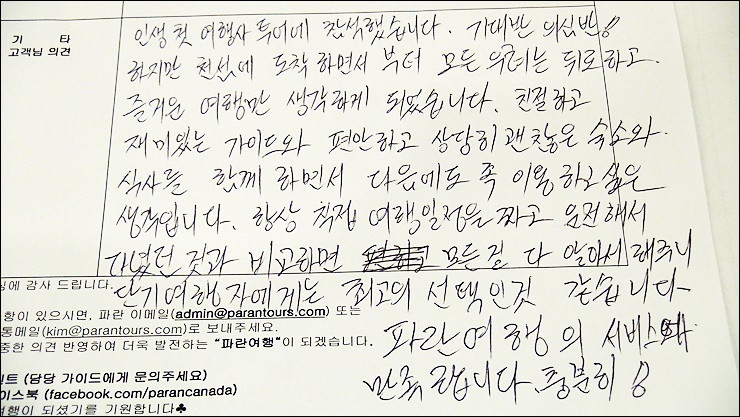 기 타
고객님 의견
인생 첫 여행사 투어에 참석했습니다. 기대반 의심반!!
하지만 천섬에 도착하면서 부터 모든 의심는 뒤로하고
즐거운 여행만 생각하게 되었습니다. 친절하고
재미있는 가이드와 편안하고 상당히 괜찮은 숙소와
식사를 함께 하면서 다음에도 쪽 이용하고 싶은
생각입니다. 항상 직접 여행일정을 짜고 운전해서
다녔던 것과 비교하면 모든걸 다 알아서 해주니
단기여행자에게는 최고의 선택인것 같습니다
파란여행의 서비스와
만족합니다. 충분히!
에 감사 드립니다.
항이 있으시면, 파란 이메일(admin@parantours.com) 또는
통메일(kim@parantours.com)로 보내주세요.
중한 의견 반영하여 더욱 발전하는 "파란여행"이 되겠습니다.
인트 (담당 가이드에게 문의주세요)
이스북 (facebook.com/parancanada)
여행이 되셨기를 기원합니다♣